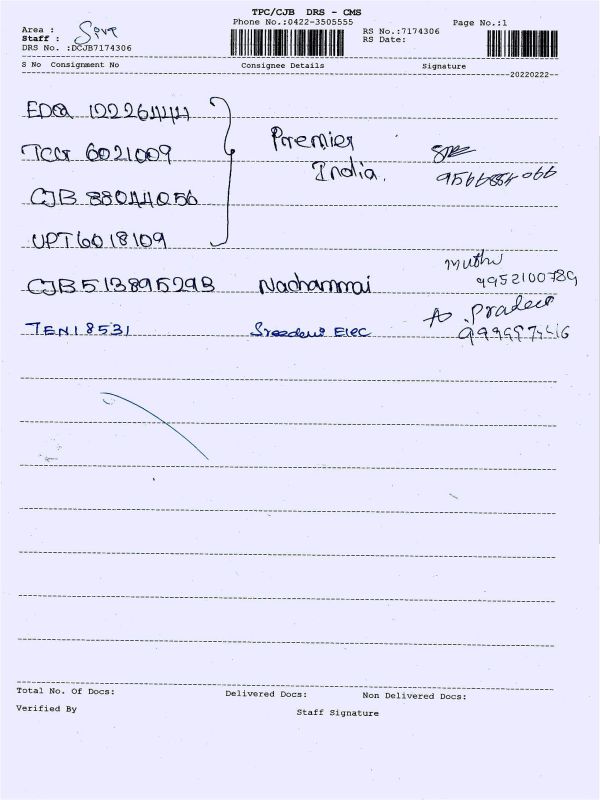 TPC/CJB DRS - CMS
Phone No.:0422-3505555
Page No.:1
Area :
Staff :
RS No.:7174306
DRS No. :DCJB7174306
RS Date:
S No Consignment No Consignee Details Signature
20220222
TCR 6021009
Premier
India.
CJB 88044056
UPT 6018109
Muthu
9952100789
CJB 513895298 Nachammai
Pradeep
TEN18531 Elec
Total No. Of Docs: Delivered Docs: Non Delivered Docs:
Verified By Staff Signature